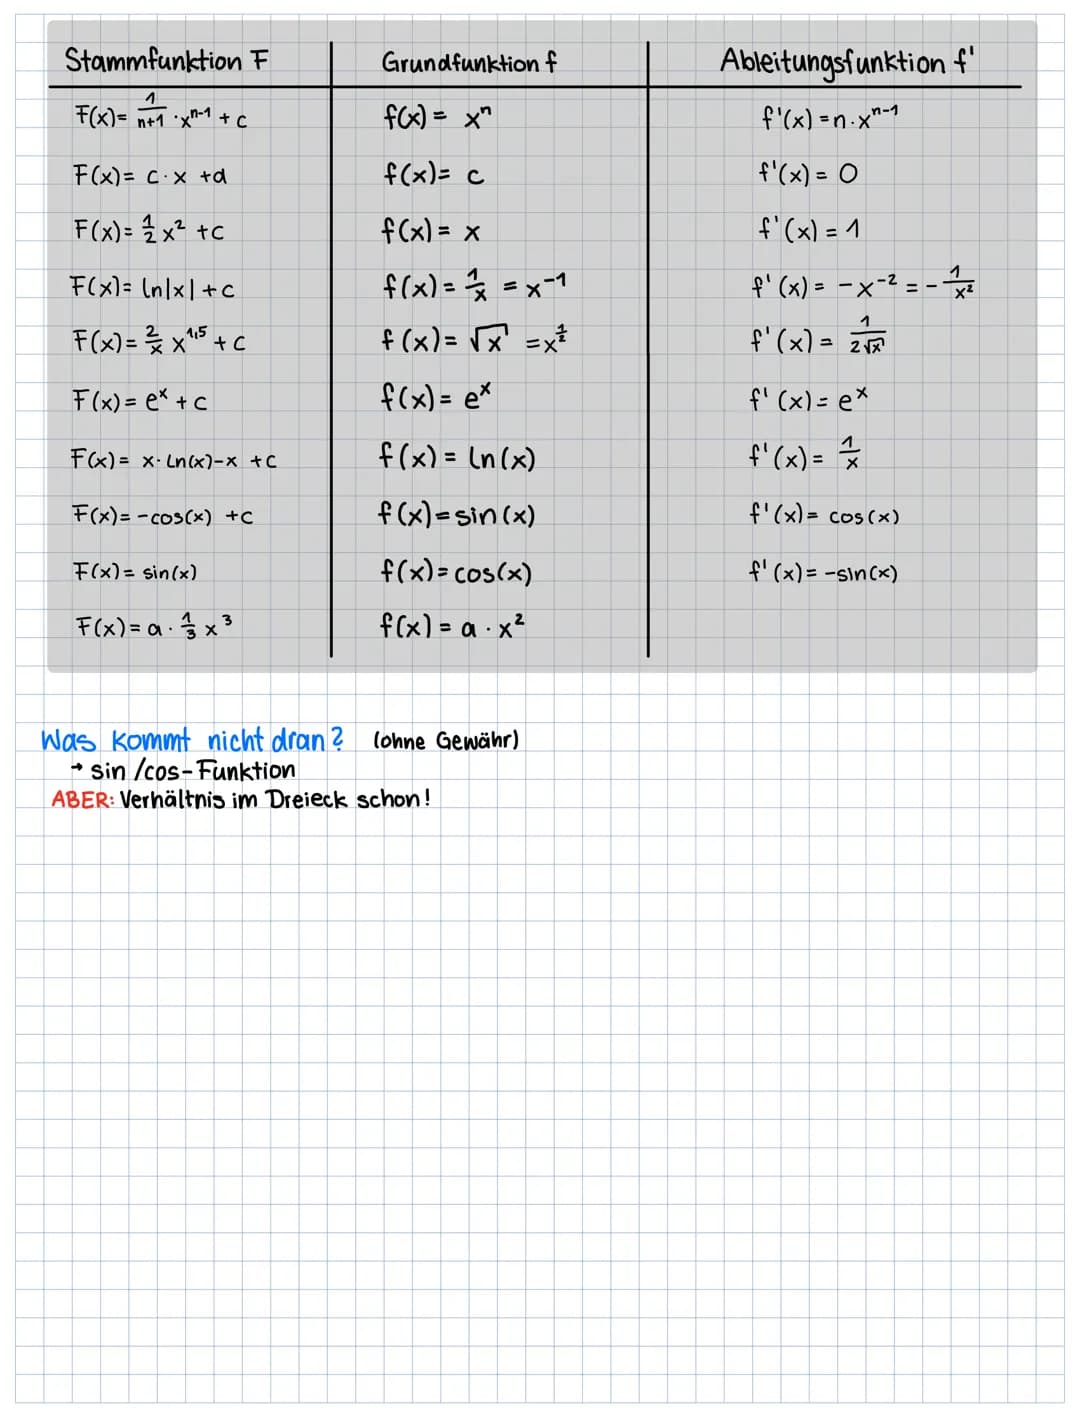 Stammfunktion F | Grundfunktion f | Ableitungsfunktion f'
F(x)= 1/n+1 · xⁿ⁻¹ + c | f(x) = xⁿ | f'(x) = n·xⁿ⁻¹
F(x)= c·x +d | f(x)= c | f'(x) = 0
F(x)= 1/2 x² +c | f(x) = x | f'(x) = 1
F(x)= ln|x| +c | f(x) = 1/x = x⁻¹ | f'(x) = -x⁻² = - 1/x²
F(x)= 2/x x^1,5 + c | f(x)= √x = x^1/2 | f'(x) = 1/2√x
F(x)= eˣ + c | f(x)= eˣ | f'(x) = eˣ
F(x)= x·ln(x)-x +c | f(x) = ln(x) | f'(x)= 1/x
F(x)= -cos(x) +c | f(x)=sin(x) | f'(x)= cos(x)
F(x)= sin(x) | f(x)=cos(x) | f'(x)= -sin(x)
F(x)= a · 1/3 x³ | f(x) = a · x²
Was kommt nicht dran? (ohne Gewähr)
→ sin/cos-Funktion
ABER: Verhältnis im Dreieck schon!